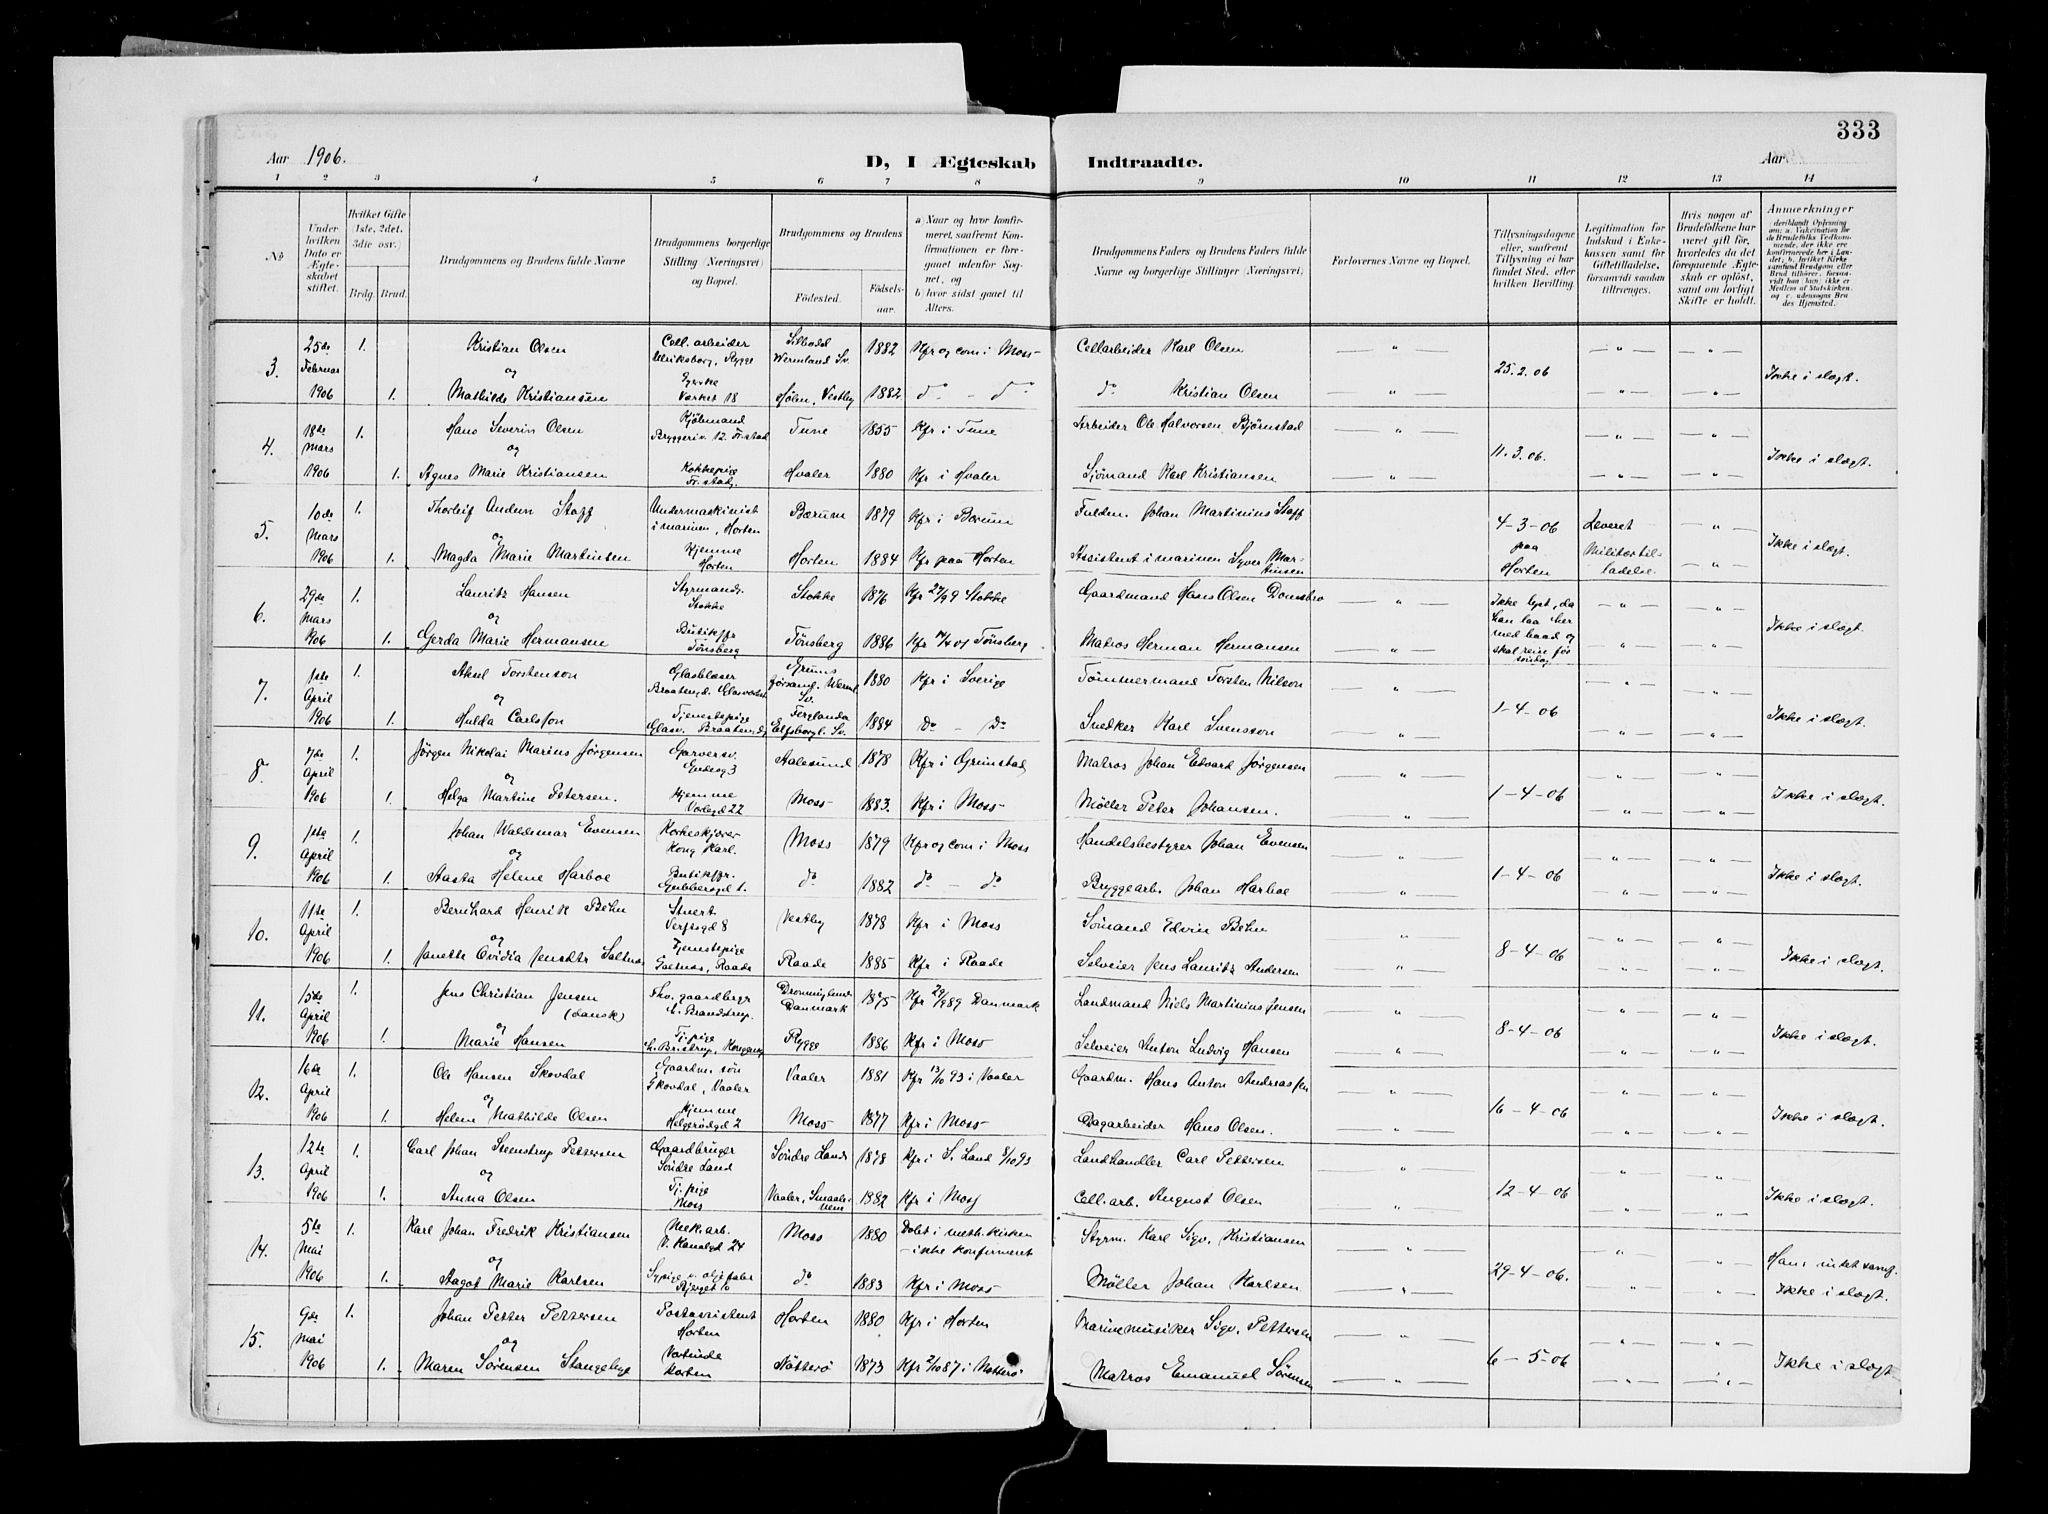 333
Aar 1906. D, I Ægteskab Indtraadte. Aar
1 2 3 4 5 6 7 8 9 10 11 12 13 14
No
Under hvilken Dato er Ægteskabet stiftet.
Hvilket Gifte (1ste, 2det, 3die osv.)
Brdg. Brud.
Brudgommens og Brudens fulde Navne
Brudgommens borgerlige Stilling (Næringsvei) og Bopæl.
Brudgommens og Brudens
Fødested. Fødselsaar.
a) Naar og hvor konfirmeret, saafremt Konfirmationen er foregaaet udenfor Sognet, og
b) hvor sidst gaaet til Alters.
Brudgommens Faders og Brudens Faders fulde Navne og borgerlige Stillinger (Næringsvei).
Forlovernes Navne og Bopæl.
Tillysningsdagene eller, saafremt Tillysning ei har fundet Sted, efter hvilken Bevilling.
Legitimation for Indskud i Enkekassen samt for Giftetilladelse, forsaavidt saadan tiltrænges.
Hvis nogen af Brudefolkene har været gift før, hvorledes da det foregaaende Ægteskab er opløst, samt om lovligt Skifte er holdt.
Anmerkninger
3. 25de Februar 1906 1. Kristian Olsen Cell. arbeider Ulriksborg, Rygge Silbodal Wermland Sv. 1882 Kfr og com i Moss Cellarbeider Karl Olsen 25.2.06 Ikke i slægt.
og
1. Mathilde Kristiansen Værket 18 Hølen, Vestby 1882 do – do do Kristian Olsen
4. 18de Mars 1906 1. Hans Severin Olsen Kjøbmand Bryggeriv. 12 Fr.stad Tune 1855 Kfr i Tune Arbeider Ole Halvorsen Bjørnstad 11.3.06. Ikke i slægt.
og
1. Agnes Marie Kristiansen Kokkepige Fr.stad. Hvaler 1880 Kfr i Hvaler Sjømand Karl Kristiansen
5. 10de Mars 1906 1. Thorleif Staff Undermaskinist i marinen, Horten Bærum 1879 Kfr i Bærum Johan Martinius Staff 4-3-06 paa Horten Leveret Militærtilladelse. Ikke i slægt.
og
1. Magda Marie Martinsen Hjemme Horten Horten 1884 Kfr paa Horten Assistent i marinen Syver Martinsen
6. 29de Mars 1906 1. Lauritz Hansen Styrmand, Stokke Stokke 1876 Kfr Stokke Gaardmand Hans Olsen Ikke lyst, da han laa her med baad og skal reise før søndag Ikke i slægt.
og
1. Gerda Marie Hermansen Butikjfr Tönsberg Tönsberg 1886 Kfr Tönsberg Matros Herman Hermansen
7. 1ste April 1906 1. Aksel Torstenson Glasblæser 1880 Kfr i Sverige Tömmermand Torsten Nilson 1-4-06 Ikke i slægt.
og
1. Hulda Carlsson Tjenestepige Ferglanda Elfsborgl. Sv. 1884 do – do Snedker Karl Svensson
8. 7de April 1906 1. Jørgen Nikolai Marius Jørgensen Garversv. Aalesund 1878 Kfr i Grimstad Matros Johan Edvard Jørgensen 1-4-06 Ikke i slægt.
og
1. Helga Martine Petersen. Hjemme 1883. Moss Kfr i Moss Møller Peter Johansen.
9. 1ste April 1906 1. Johan Waldemar Evensen Korkeskjærer Kong Karl. Moss 1879 Kfr og com i Moss Handelsbestyrer Johan Evensen 1-4-06 Ikke i slægt.
og
1. Aasta Helene Harboe Butikjfr. Gubbersgd 1. do 1882 do – do Bryggearb. Johan Harboe
10. 11te April 1906 1. Bernhard Henrik Behn Stuert Verftsgd 8 Vestby 1878 Kfr i Moss Sømand Edvin Behn 8-4-06 Ikke i slægt.
og
1. Janette Ovidia Jensdtr Saltnes Tjenestepige Saltnes, Raade Raade 1885 Kfr i Raade Selveier Jens Lauritz Andersen
11. 15de April 1906 1. Jens Christian Jensen (dansk) Danmark 1875 Kfr Danmark Landmand Niels Martinius Jensen 8-4-06 Ikke i slægt.
og
1. Marie Hansen Tj. pige Rygge 1886 Kfr i Moss Selveier Anton Ludvig Hansen
12. 16de April 1906 1. Ole Hansen Skovdal Gaardm. søn Skovdal, Vaaler Vaaler 1881 Kfr 13/10 93 i Vaaler Gaardm. Hans Anton Andreassen 16-4-06 Ikke i slægt.
og
1. Helene Mathilde Olsen Hjemme Helgerødgd 2 Moss 1877 Kfr i Moss Bagarbeider Hans Olsen.
13. 12te April 1906 1. Carl Johan Steenstrup Pettersen Gaardbruger Søndre Land Søndre Land 1878 Kfr i S. Land 8/10 93 Landhandler Carl Pettersen 12-4-06 Ikke i slægt.
og
1. Anna Olsen Tj. pige Moss Vaaler, Smaalenene 1882 Kfr i Moss Cell. arb. August Olsen
14. 5te Mai 1906 1. Karl Johan Fredrik Kristiansen Mek. arb. V. Kanalgd 24 Moss 1880 Døbt i meth. kirken – ikke konfirmeret Styrm. Karl Sigv. Kristiansen 29-4-06.
og
1. Aagot Marie Karlsen do 1883 Kfr i Moss Møller Johan Karlsen Ikke i slægt.
15. 9de Mai 1906 1. Johan Petter Pettersen Horten Horten 1880 Kfr i Horten Marinemusiker Sigv. Pettersen 6-5-06 Ikke i slægt
og
1. Maren Sørensen Horten Nötterö 1873 Kfr 2/10 87 i Nötterö Matros Emanuel Sørensen